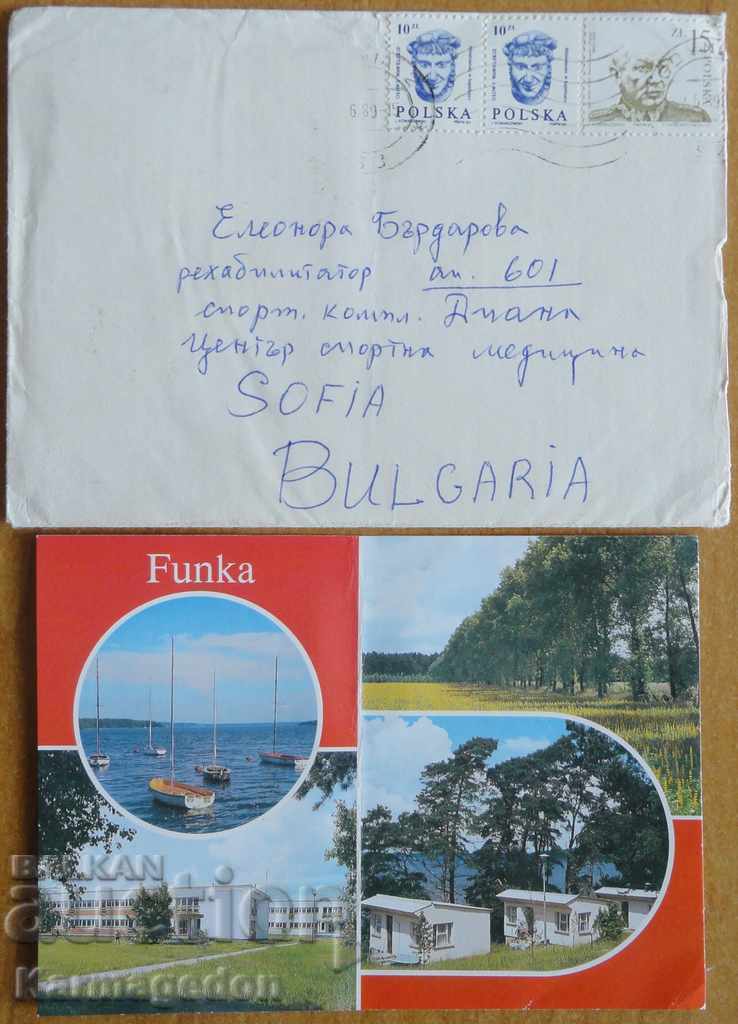 10 zł
10 zł
15 ZŁ
POLSKA
POLSKA
POLSKA
6.89
Елеонора Бърдарова
рехабилитатор ап. 601
спорт. компл. Диана
Център спортна медицина
SOFIA
BULGARIA
Funka
BALKAN
auction
Karmagedon